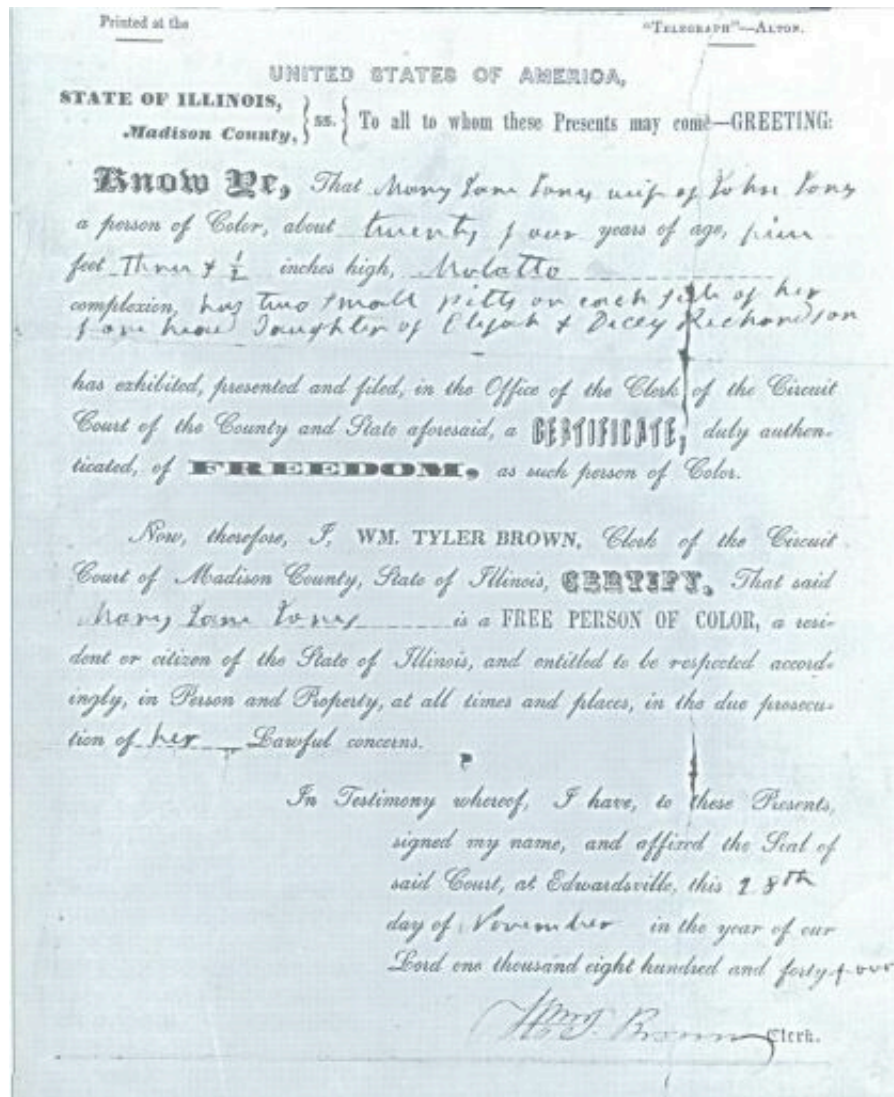 Printed at the "TELEGRAPH"—ALTON.
UNITED STATES OF AMERICA,
STATE OF ILLINOIS,
Madison County, } ss. { To all to whom these Presents may come—GREETING:
Know Ye, That Mary Jane Jones wife of John Jones
a person of Color, about twenty four years of age, five
feet Three & ½ inches high, Molatto
complexion, has two small pitts on each side of her
fore head Daughter of Elijah & Dicey Richardson
has exhibited, presented and filed, in the Office of the Clerk of the Circuit
Court of the County and State aforesaid, a CERTIFICATE, duly authen-
ticated, of FREEDOM, as such person of Color.
Now, therefore, I, WM. TYLER BROWN, Clerk of the Circuit
Court of Madison County, State of Illinois, CERTIFY, That said
Mary Jane Jones is a FREE PERSON OF COLOR, a resi-
dent or citizen of the State of Illinois, and entitled to be respected accord-
ingly, in Person and Property, at all times and places, in the due prosecu-
tion of her Lawful concerns.
In Testimony whereof, I have, to these Presents,
signed my name, and affixed the Seal of
said Court, at Edwardsville, this 28th
day of November in the year of our
Lord one thousand eight hundred and forty-four
Wm T. Brown Clerk.